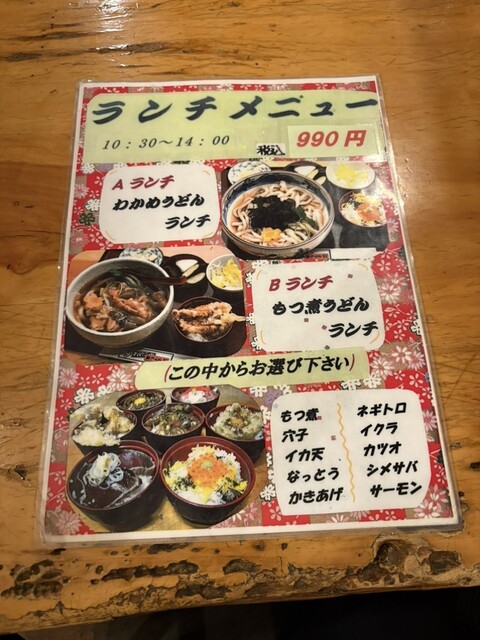 ランチメニュー
10：30～14：00
税込 990円
Aランチ
わかめうどん
ランチ
Bランチ
もつ煮うどん
ランチ
(この中からお選び下さい)
もつ煮
穴子
イカ天
なっとう
かきあげ
ネギトロ
イクラ
カツオ
シメサバ
サーモン